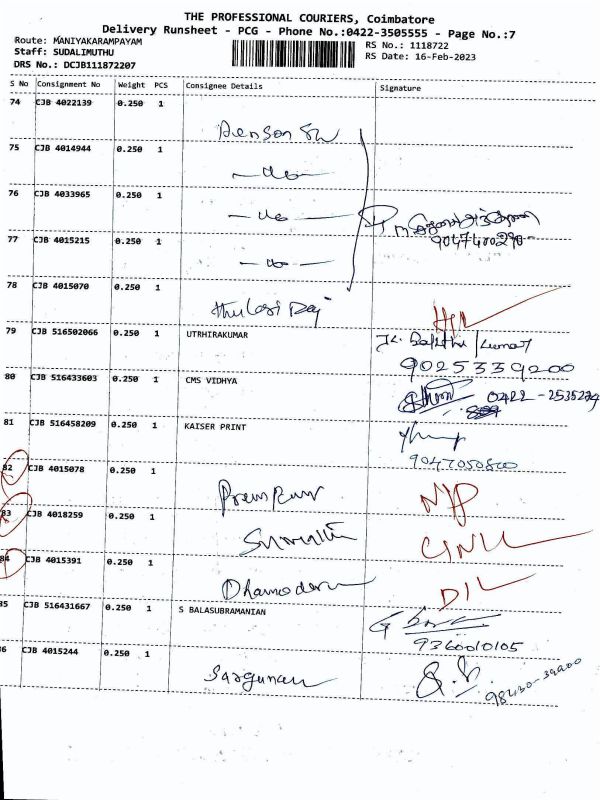 THE PROFESSIONAL COURIERS, Coimbatore
Delivery Runsheet - PCG - Phone No.:0422-3505555 - Page No.:7
Route: MANIYAKARAMPAYAM
RS No.: 1118722
Staff: SUDALIMUTHU
RS Date: 16-Feb-2023
DRS No.: DCJB111872207
S No Consignment No Weight PCS Consignee Details Signature
74 CJB 4022139 0.250 1
75 CJB 4014944 0.250 1
76 CJB 4033965 0.250 1
77 CJB 4015215 0.250 1
9047400290
78 CJB 4015070 0.250 1
Thulasi Raj
79 CJB 516502066 0.250 1 UTRHIRAKUMAR
9025339200
80 CJB 516433603 0.250 1 CMS VIDHYA
0422-2535224
81 CJB 516458209 0.250 1 KAISER PRINT
9047050800
82 CJB 4015078 0.250 1
83 CJB 4018259 0.250 1
84 CJB 4015391 0.250 1
Dhamodaran D/L
85 CJB 516431667 0.250 1 S BALASUBRAMANIAN
9360010105
86 CJB 4015244 0.250 1
Sargunam
98430-39200